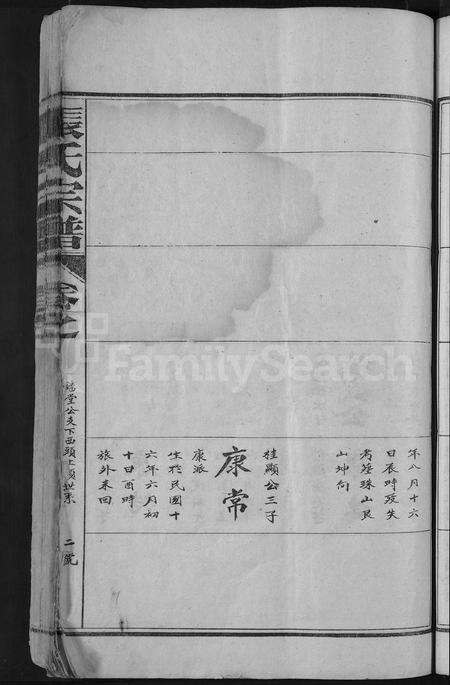 年八月十六
日辰時歿失
考葬珠山艮
山坤向
桂顯公三子
康常
康派
生於民國十
六年六月初
十日酉時
旅外未回
張氏宗譜
卷之
公支下西頭上員世系
二號
FamilySearch